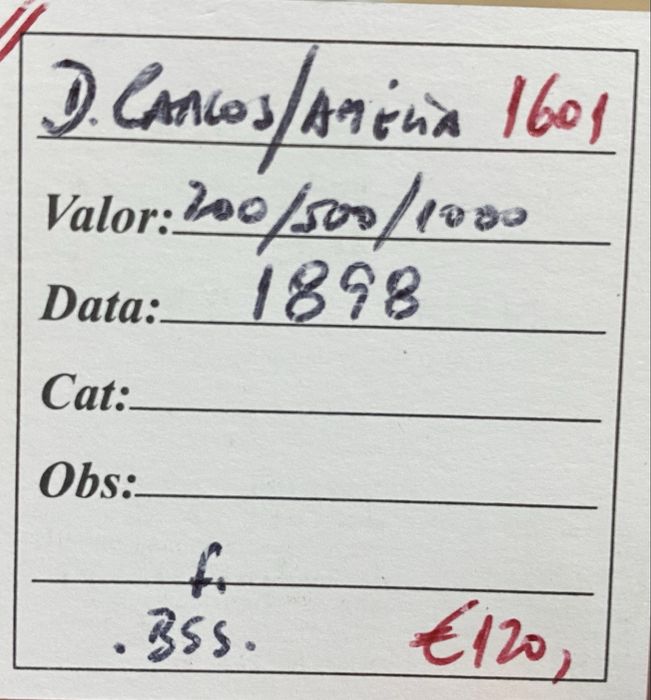 D. CARLOS/AMÉLIA 1601
Valor: 200/500/1000
Data: 1898
Cat:
Obs:
f.
. BSS.
€120,